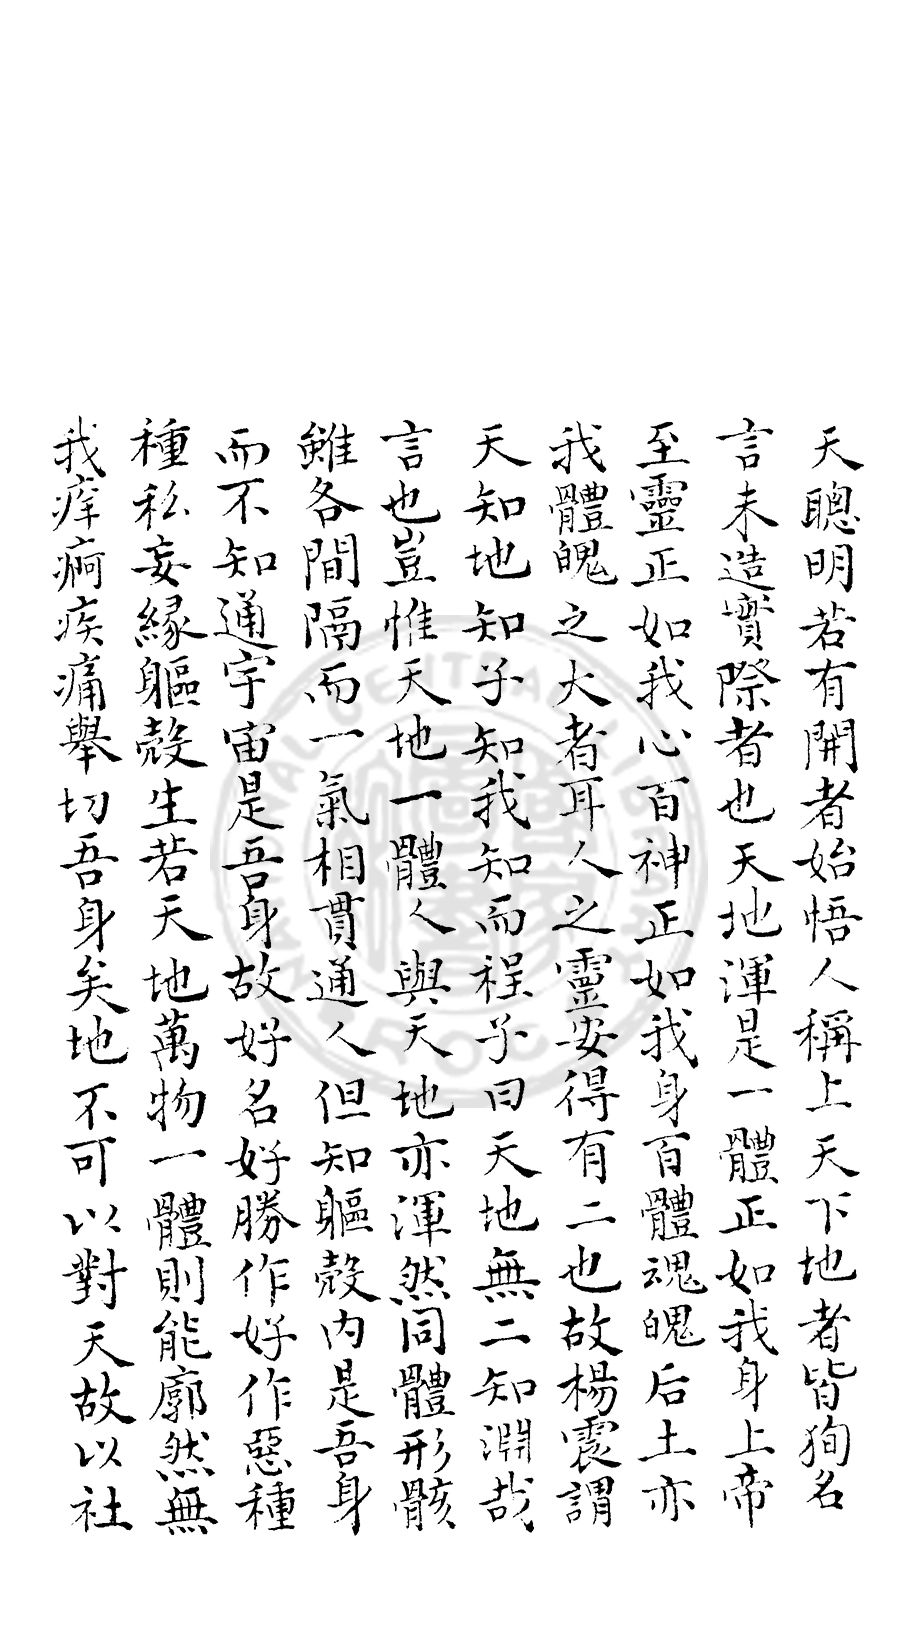 天聰明若有開者始悟人稱上天下地者皆狥名
言未造實際者也天地渾是一體正如我身上帝
至靈正如我心百神正如我身百體魂魄后土亦
我體魄之大者耳人之靈安得有二也故楊震謂
天知地知子知我知而程子曰天地無二知淵哉
言也豈惟天地一體人與天地亦渾然同體形骸
雖各間隔而一氣相貫通人但知軀殼内是吾身
而不知通宇宙是吾身故好名好勝作好作惡種
種私妄緣軀殼生若天地萬物一體則能廓然無
我痒痾疾痛舉切吾身矣地不可以對天故以社